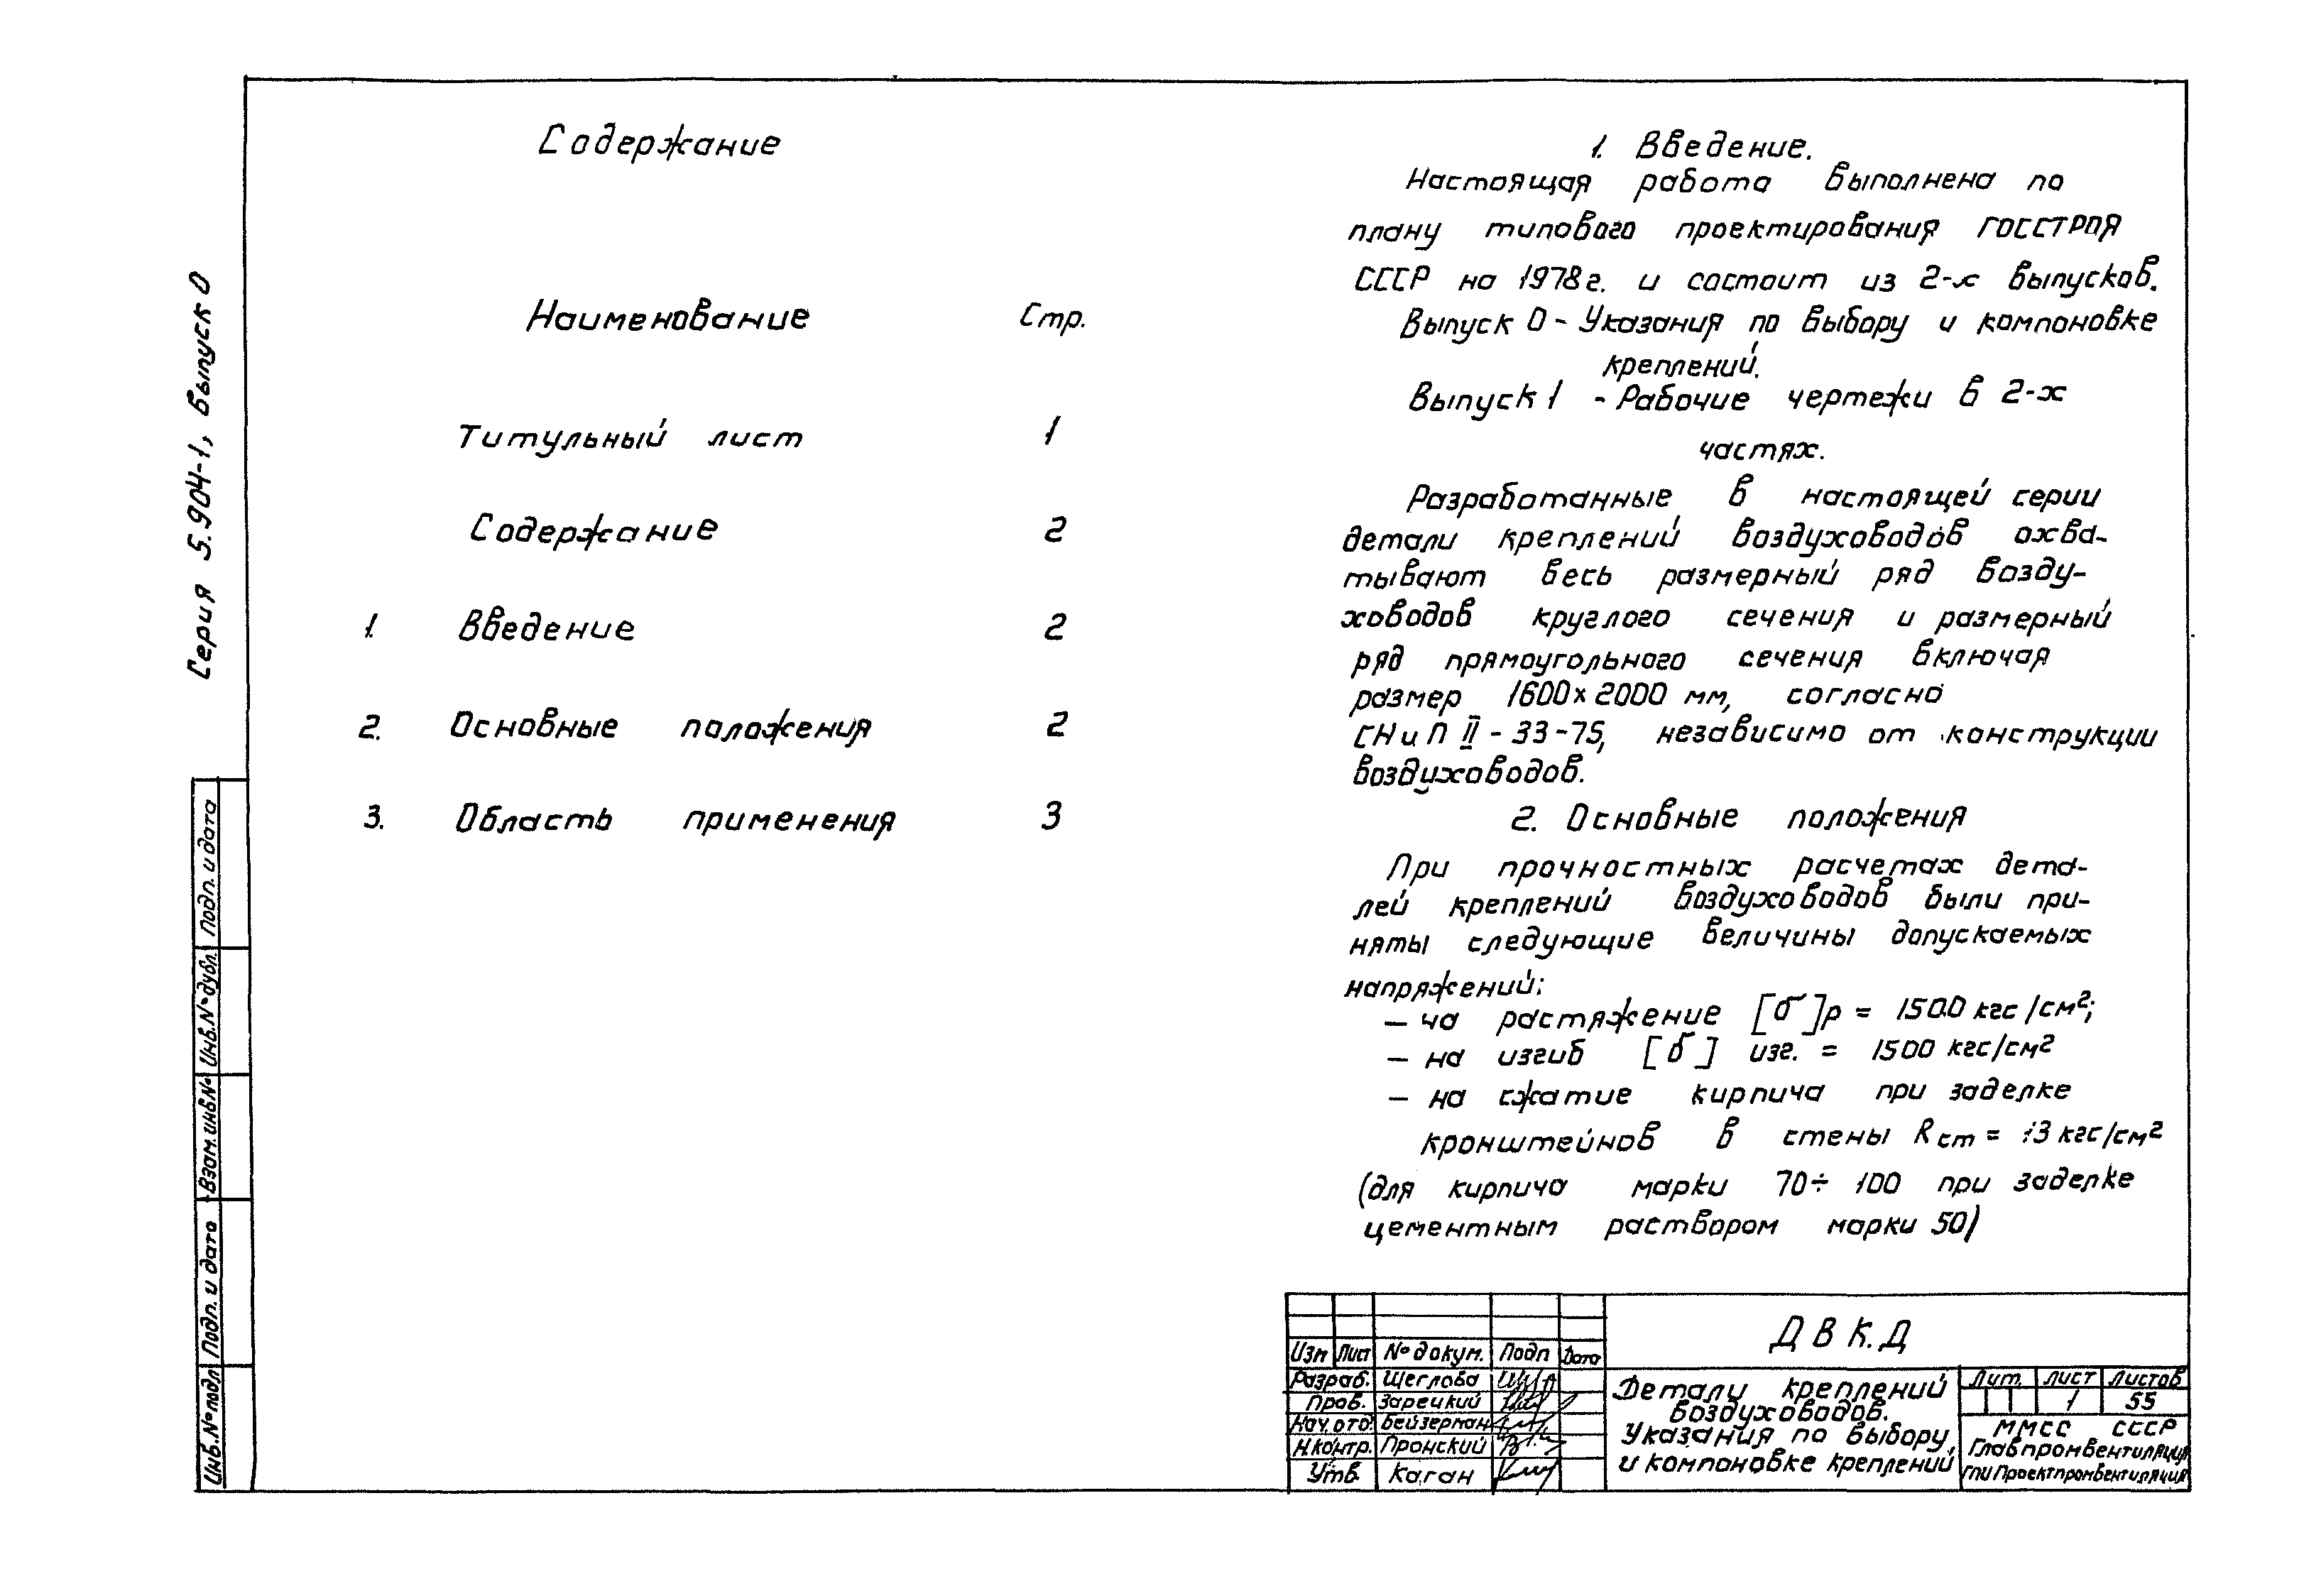 Содержание
Наименование Стр.
Титульный лист 1
Содержание 2
1. Введение 2
2. Основные положения 2
3. Область применения 3
1. Введение.
Настоящая работа выполнена по
плану типового проектирования ГОССТРОЯ
СССР на 1978г. и состоит из 2-х выпусков.
Выпуск 0 - Указания по выбору и компоновке
креплений.
Выпуск 1 - Рабочие чертежи в 2-х
частях.
Разработанные в настоящей серии
детали креплений воздуховодов охва-
тывают весь размерный ряд возду-
ховодов круглого сечения и размерный
ряд прямоугольного сечения включая
размер 1600×2000 мм, согласно
СНиП II - 33-75, независимо от конструкции
воздуховодов.
2. Основные положения
При прочностных расчетах дета-
лей креплений воздуховодов были при-
няты следующие величины допускаемых
напряжений:
— на растяжение [б]р = 1500 кгс/см²;
— на изгиб [б] изг. = 1500 кгс/см²
— на сжатие кирпича при заделке
кронштейнов в стены Rст = 13 кгс/см²
(для кирпича марки 70÷100 при заделке
цементным раствором марки 50)
Серия 5.904-1, выпуск 0
Подп. и дата
Инв.№дубл.
Взам.инв№
Подп. и дата
Инв.№подл
ДВК.Д
Изм Лист №докум. Подп Дата
Разраб. Щеглова
Пров. Зарецкий
Нач.отд. Бейзерман
Н.контр. Пронский
Утв. Каган
Детали креплений
воздуховодов.
Указания по выбору
и компоновке креплений
Лит. Лист Листов
1 55
ММСС СССР
Главпромвентиляция
ГПИ Проектпромвентиляция